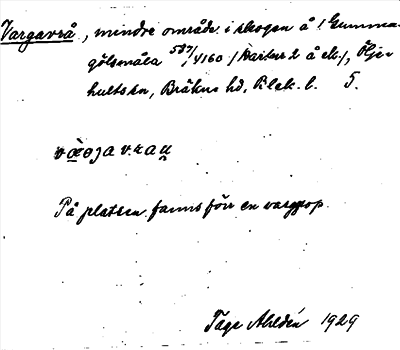 Vargavrå, mindre område i skogen å 1 Gumma-
gölsmåla 587/4160 /karterr 2 å ek./, Öljе-
hultskn, Bräkne hd, Blek. l. 5.
væ̀ɵʒavrau
På platsen fanns förr en varggrop.
Tage Ahldén 1929